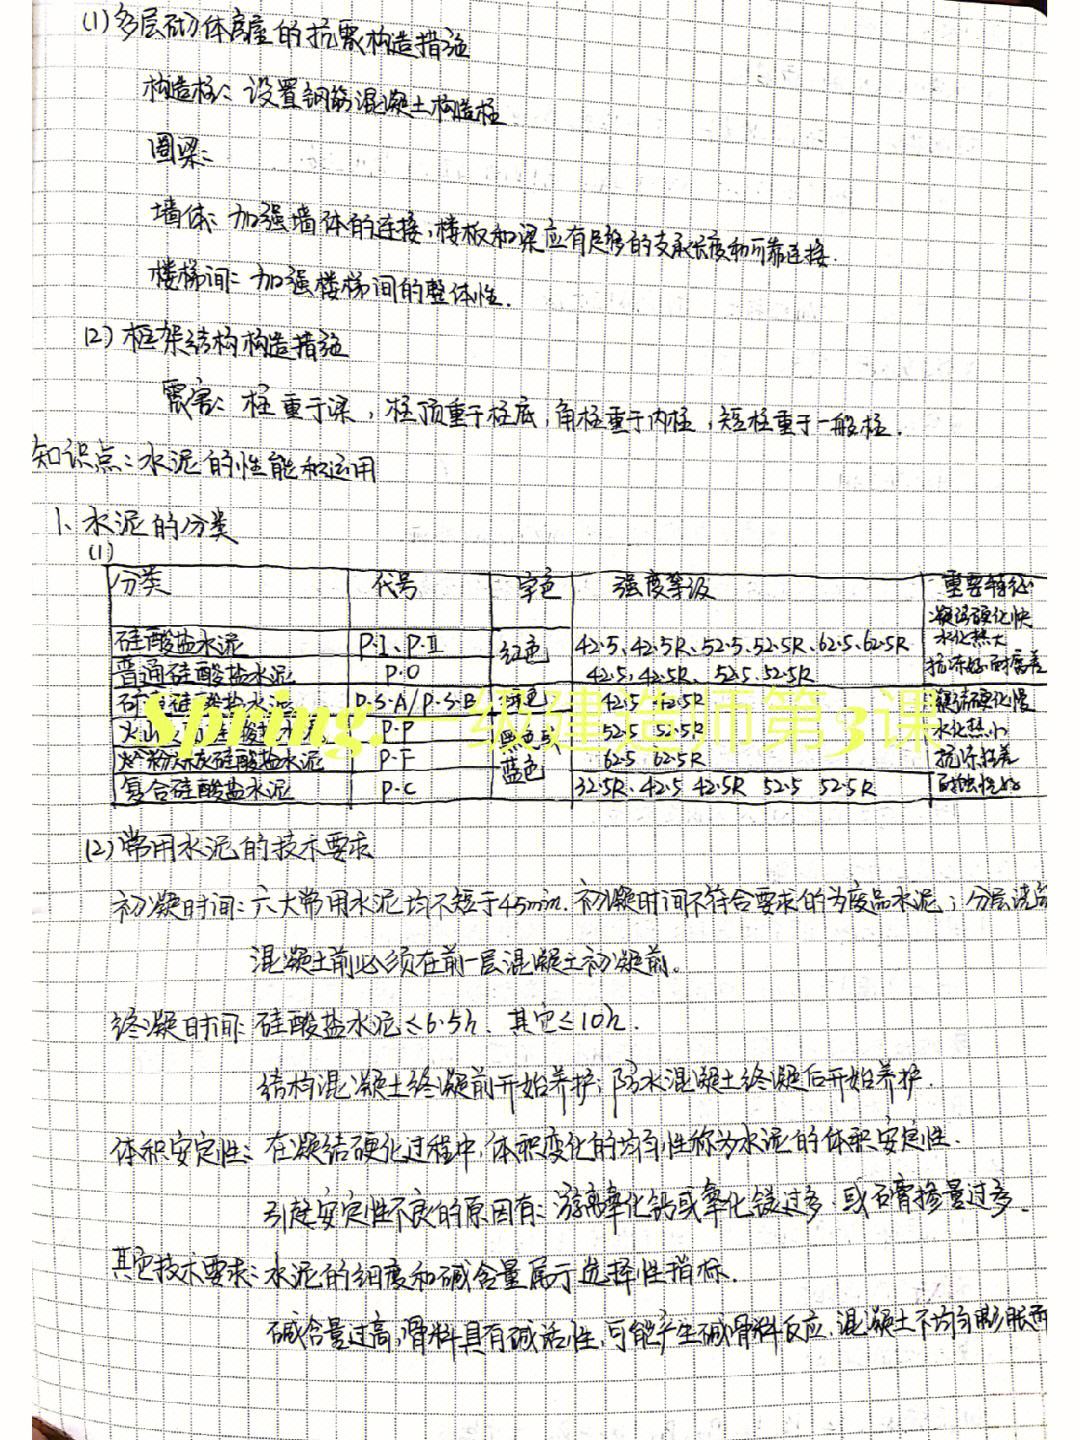 (1) 多层砌体房屋的抗震构造措施
构造柱：设置钢筋混凝土构造柱
圈梁：
墙体：加强墙体的连接，楼板和梁应有足够的支承长度和可靠连接.
楼梯间：加强楼梯间的整体性.
(2) 框架结构构造措施
震害：柱重于梁，柱顶重于柱底，角柱重于内柱，短柱重于一般柱.
知识点：水泥的性能和运用
1、水泥的分类
(1)
分类 代号 字色 强度等级 重要特征
凝结硬化快
硅酸盐水泥 P·I、P·II 红色 42.5、42.5R、52.5、52.5R、62.5、62.5R 水化热大
普通硅酸盐水泥 P·O 42.5、42.5R、52.5、52.5R 抗冻好 耐腐差
P·S·A/P·S·B 绿色 42.5 42.5R 凝结硬化慢
P·P 黑色或 52.5 52.5R 水化热小
粉煤灰硅酸盐水泥 P·F 蓝色 62.5 62.5R 抗冻较差
复合硅酸盐水泥 P·C 32.5R、42.5 42.5R 52.5 52.5R
Spring.一级建造师第3课
(2) 常用水泥的技术要求
初凝时间：六大常用水泥均不短于45min. 初凝时间不符合要求的为废品水泥；分层浇筑
混凝土前必须在前一层混凝土初凝前。
终凝时间：硅酸盐水泥≤6.5h、其它≤10h.
结构混凝土终凝前开始养护；防水混凝土终凝后开始养护.
体积安定性：在凝结硬化过程中，体积变化的均匀性称为水泥的体积安定性.
引起安定性不良的原因有：游离氧化钙或氧化镁过多，或石膏掺量过多。
其它技术要求：水泥的细度和碱含量属于选择性指标.
碱含量过高，骨料具有碱活性，可能产生碱骨料反应，混凝土不均匀膨胀